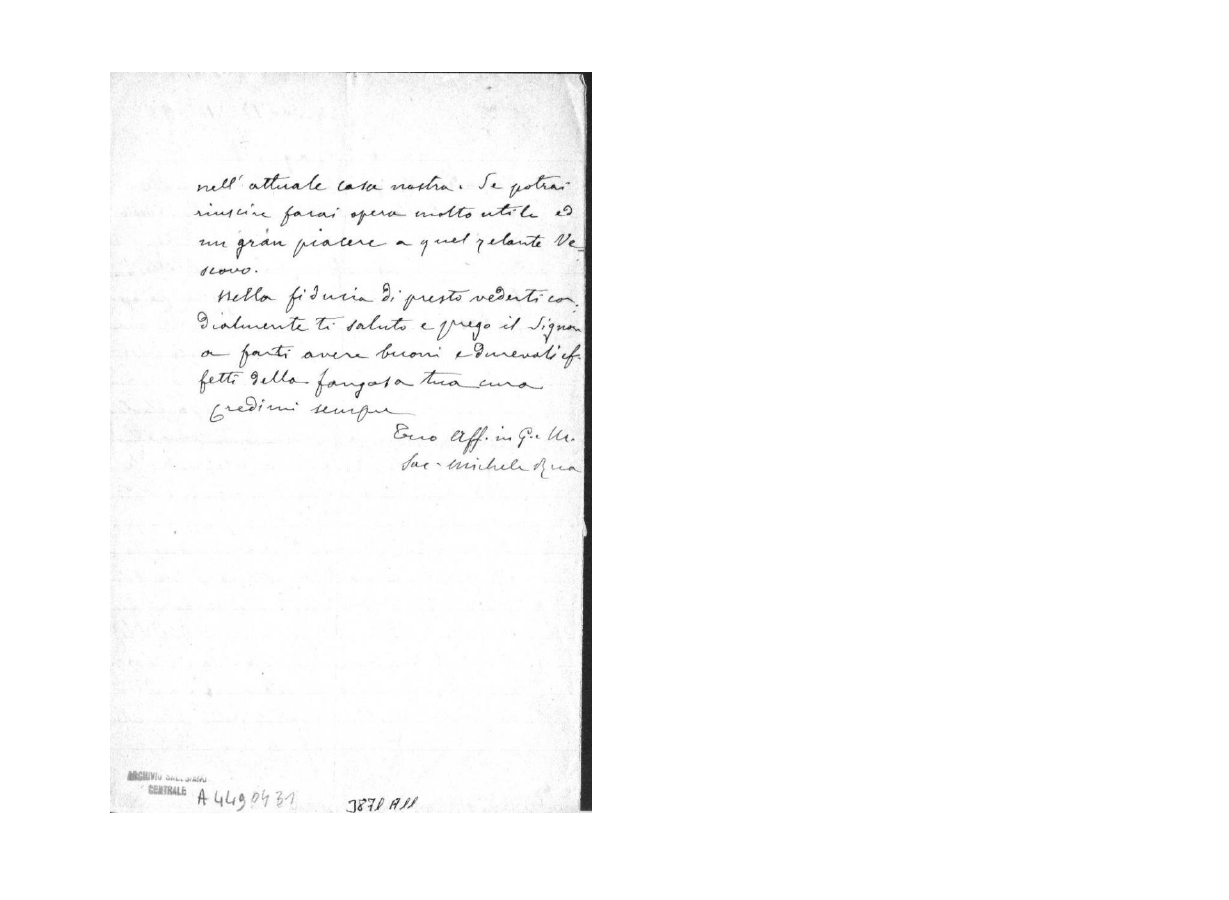 nell' attuale casa nostra. Se potrai
riuscire farai opera molto utile ed
un gran piacere a quel zelante Ve-
scovo.
Nella fiducia di presto vederti cor-
dialmente ti saluto e prego il Signore
a farti avere buoni e durevoli ef-
fetti della fangosa tua cura
Credimi sempre
Tuo Aff. in G. e M.
Sac. Michele Rua
ARCHIVIO SALESIANO
CENTRALE
A4490431